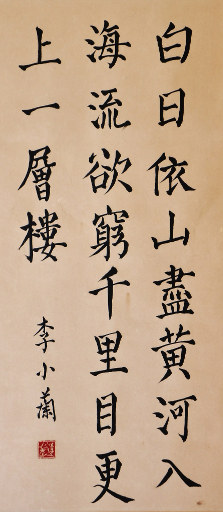 白日依山盡黃河入
海流欲窮千里目更
上一層樓
李小蘭